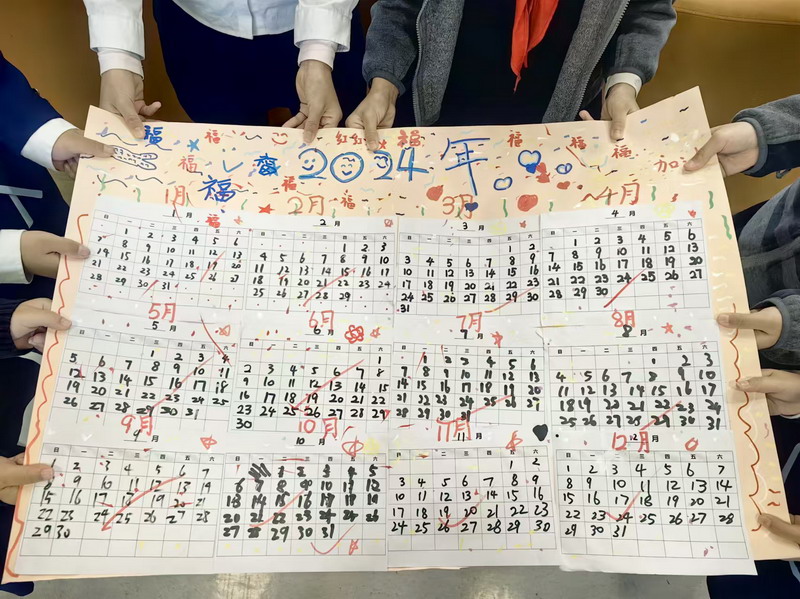 福 福 红红 福 福 福
福 福 奋 2024年 福 加
福 福
1月 2月 3月 4月
1 月
日 一 二 三 四 五 六
1 2 3 4 5 6
7 8 9 10 11 12 13
14 15 16 17 18 19 20
21 22 23 24 25 26 27
28 29 30 31
福
2 月
日 一 二 三 四 五 六
1 2 3
4 5 6 7 8 9 10
11 12 13 14 15 16 17
18 19 20 21 22 23 24
25 26 27 28 29
3 月
日 一 二 三 四 五 六
1 2
3 4 5 6 7 8 9
10 11 12 13 14 15 16
17 18 19 20 21 22 23
24 25 26 27 28 29 30
31
4 月
日 一 二 三 四 五 六
1 2 3 4 5 6
7 8 9 10 11 12 13
14 15 16 17 18 19 20
21 22 23 24 25 26 27
28 29 30
5月 6月 7月 8月
5 月
日 一 二 三 四 五 六
1 2 3 4
5 6 7 8 9 10 11
12 13 14 15 16 17 18
19 20 21 22 23 24 25
26 27 28 29 30 31
6 月
日 一 二 三 四 五 六
1
2 3 4 5 6 7 8
9 10 11 12 13 14 15
16 17 18 19 20 21 22
23 24 25 26 27 28 29
30
7 月
日 一 二 三 四 五 六
1 2 3 4 5 6
7 8 9 10 11 12 13
14 15 16 17 18 19 20
21 22 23 24 25 26 27
28 29 30 31
8 月
日 一 二 三 四 五 六
1 2 3
4 5 6 7 8 9 10
11 12 13 14 15 16 17
18 19 20 21 22 23 24
25 26 27 28 29 30 31
9月 10月 11月 12月
9 月
日 一 二 三 四 五 六
1 2 3 4 5 6 7
8 9 10 11 12 13 14
15 16 17 18 19 20 21
22 23 24 25 26 27 28
29 30
10 月
日 一 二 三 四 五 六
1 2 3 4 5
6 7 8 9 10 11 12
13 14 15 16 17 18 19
20 21 22 23 24 25 26
27 28 29 30 31
11 月
日 一 二 三 四 五 六
1 2
3 4 5 6 7 8 9
10 11 12 13 14 15 16
17 18 19 20 21 22 23
24 25 26 27 28 29 30
12 月
日 一 二 三 四 五 六
1 2 3 4 5 6 7
8 9 10 11 12 13 14
15 16 17 18 19 20 21
22 23 24 25 26 27 28
29 30 31